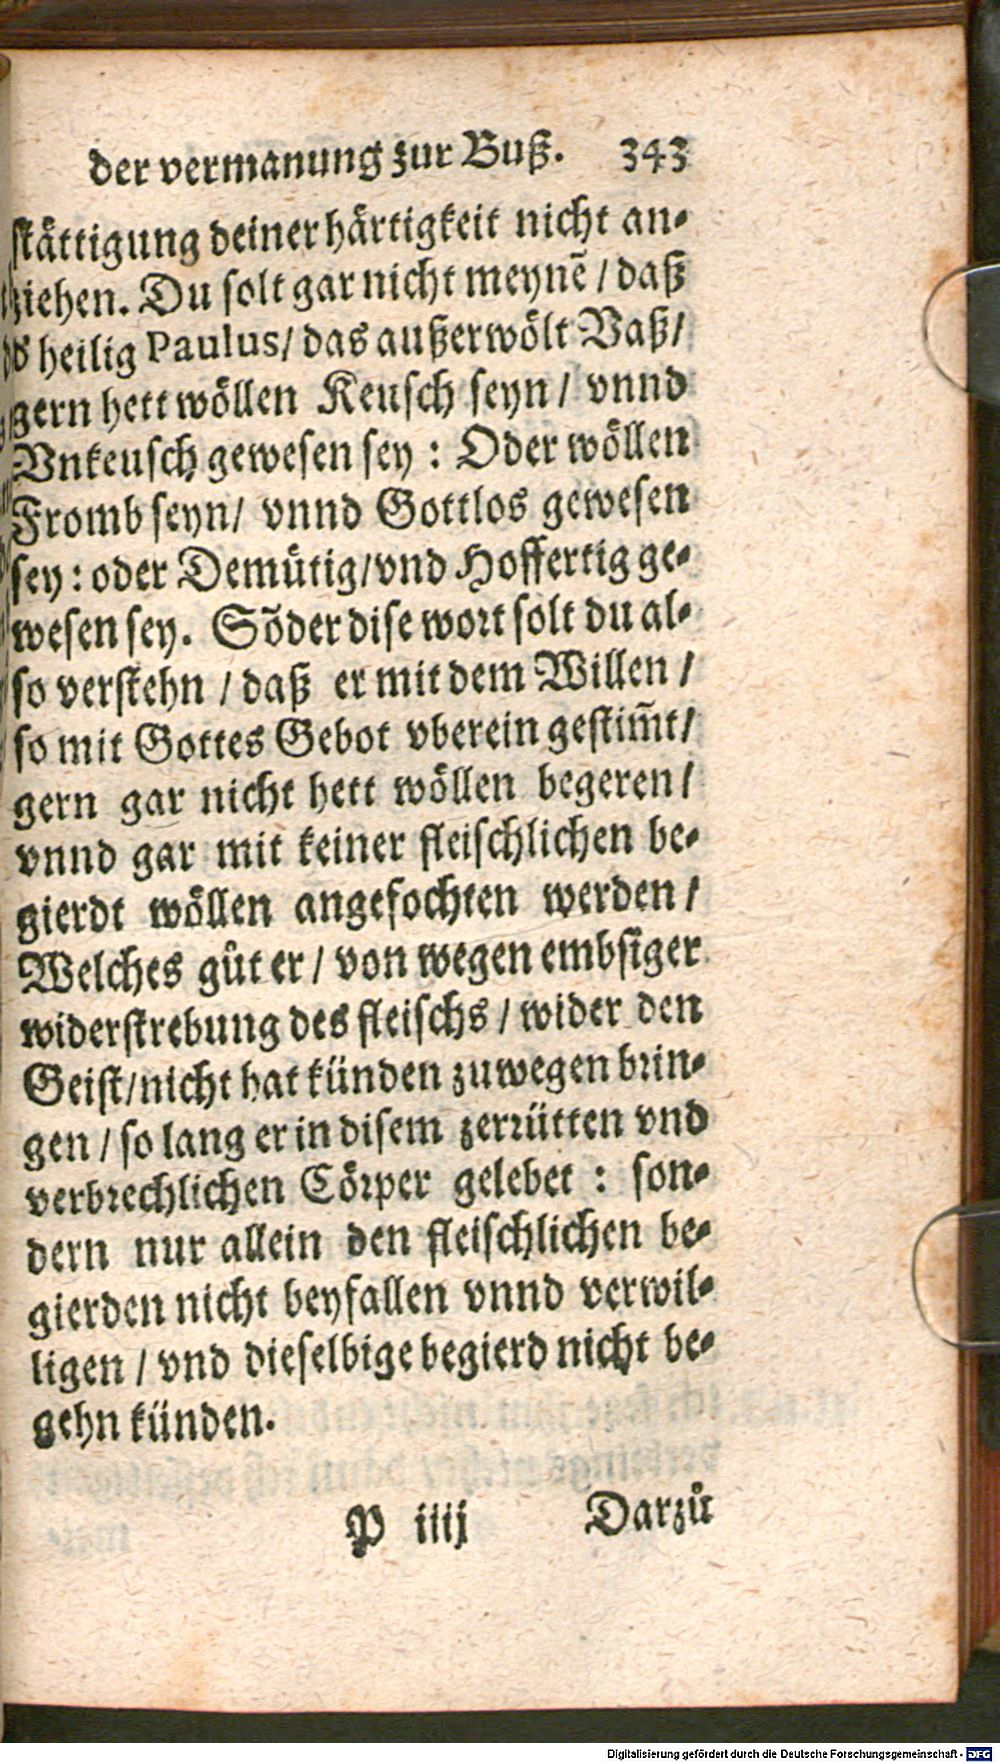 der vermanung zur Buß. 343
stättigung deiner härtigkeit nicht an-
ziehen. Du solt gar nicht meynẽ / daß
d' heilig Paulus / das außerwölt Vaß /
gern hett wöllen Keusch seyn / vnnd
Vnkeusch gewesen sey : Oder wöllen
Fromb seyn / vnnd Gottlos gewesen
sey : oder Demütig / vnd Hoffertig ge-
wesen sey. Sõder dise wort solt du al-
so verstehn / daß er mit dem Willen /
so mit Gottes Gebot vberein gestim̃t /
gern gar nicht hett wöllen begeren /
vnnd gar mit keiner fleischlichen be-
gierdt wöllen angefochten werden /
Welches gůt er / von wegen embsiger
widerstrebung des fleischs / wider den
Geist / nicht hat künden zuwegen brin-
gen / so lang er in disem zerrütten vnd
verbrechlichen Cörper gelebet : son-
dern nur allein den fleischlichen be-
gierden nicht beyfallen vnnd verwil-
ligen / vnd dieselbige begierd nicht be-
gehn künden.
P iiij Darzů
Digitalisierung gefördert durch die Deutsche Forschungsgemeinschaft - DFG